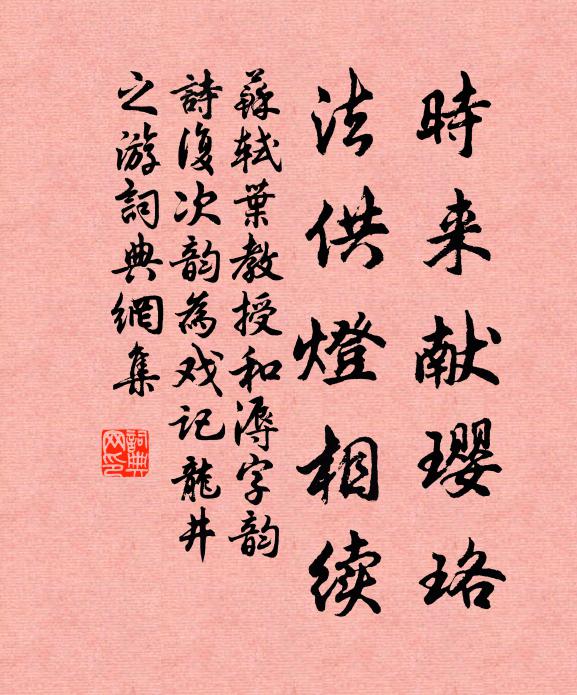 時来献璎珞
法供燈相续
蘇轼葉教授和溽字韵
詩復次韵為戏記龍井
之游詞典網集
詞典网印